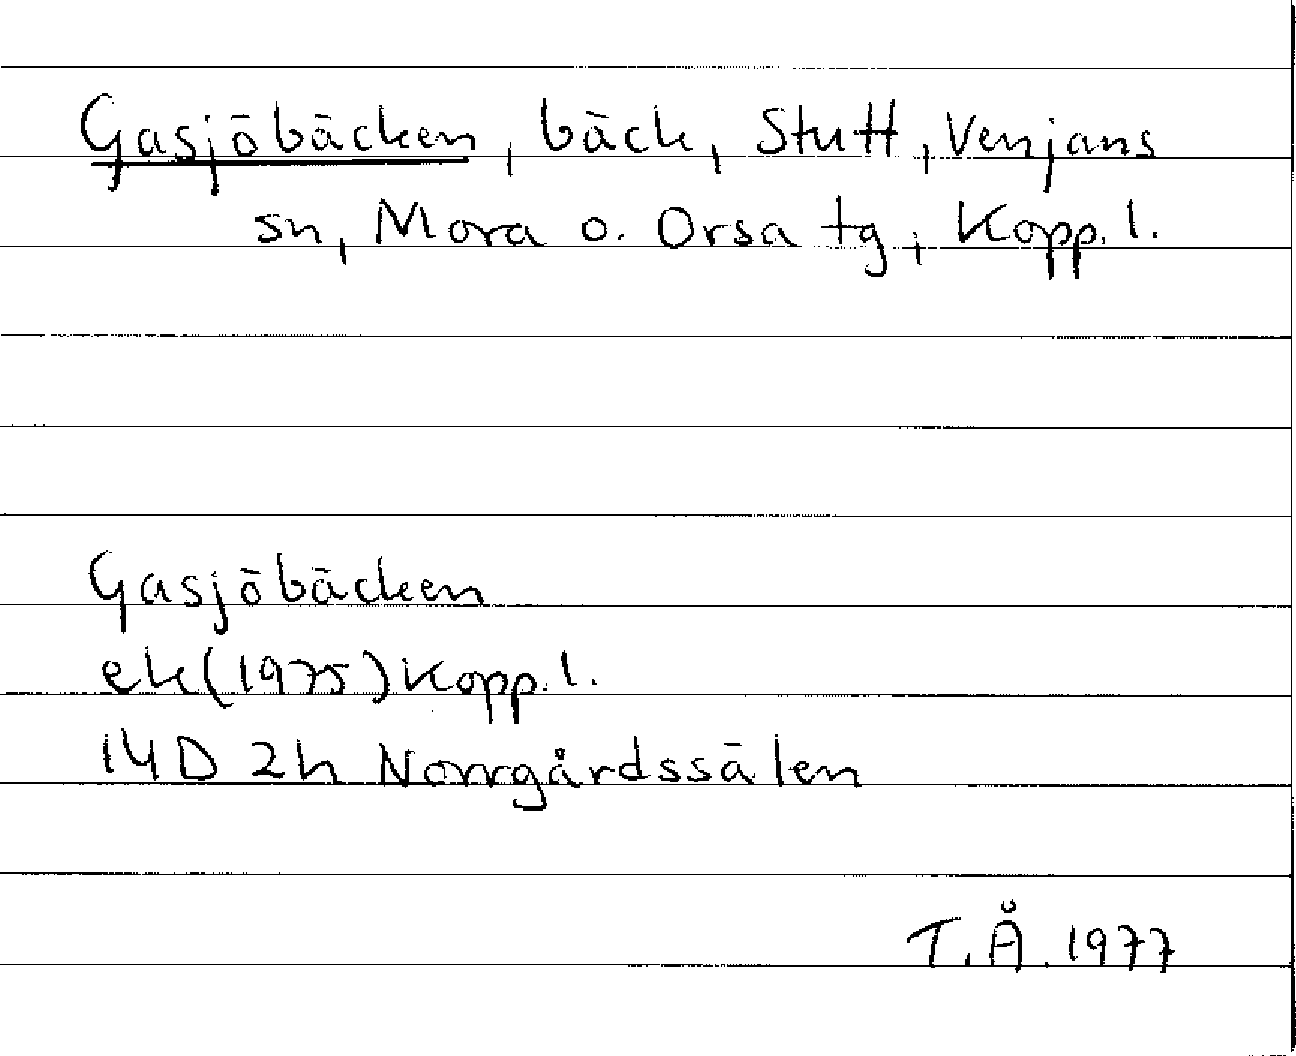 Gasjöbäcken, bäck, Stutt, Venjans
sn, Mora o. Orsa tg, Kopp. l.
Gasjöbäcken
ek (1975) Kopp. l.
14D 2h Norrgårdssälen
T.Å. 1977